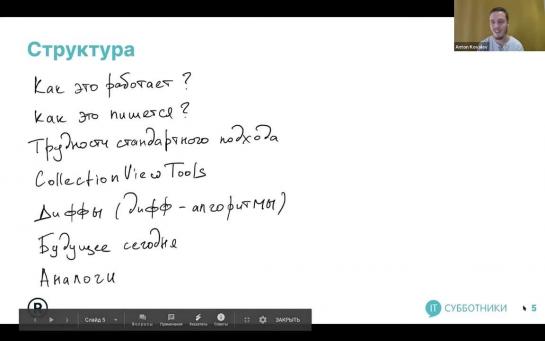 Структура
Как это работает?
Как это пишется?
Трудности стандартного подхода
CollectionViewTools
Диффы (дифф-алгоритмы)
Будущее сегодня
Аналоги
Anton Kovalev
R
Слайд 5
Вопросы
Примечания
Указатель
Советы
ЗАКРЫТЬ
IT СУББОТНИКИ
5